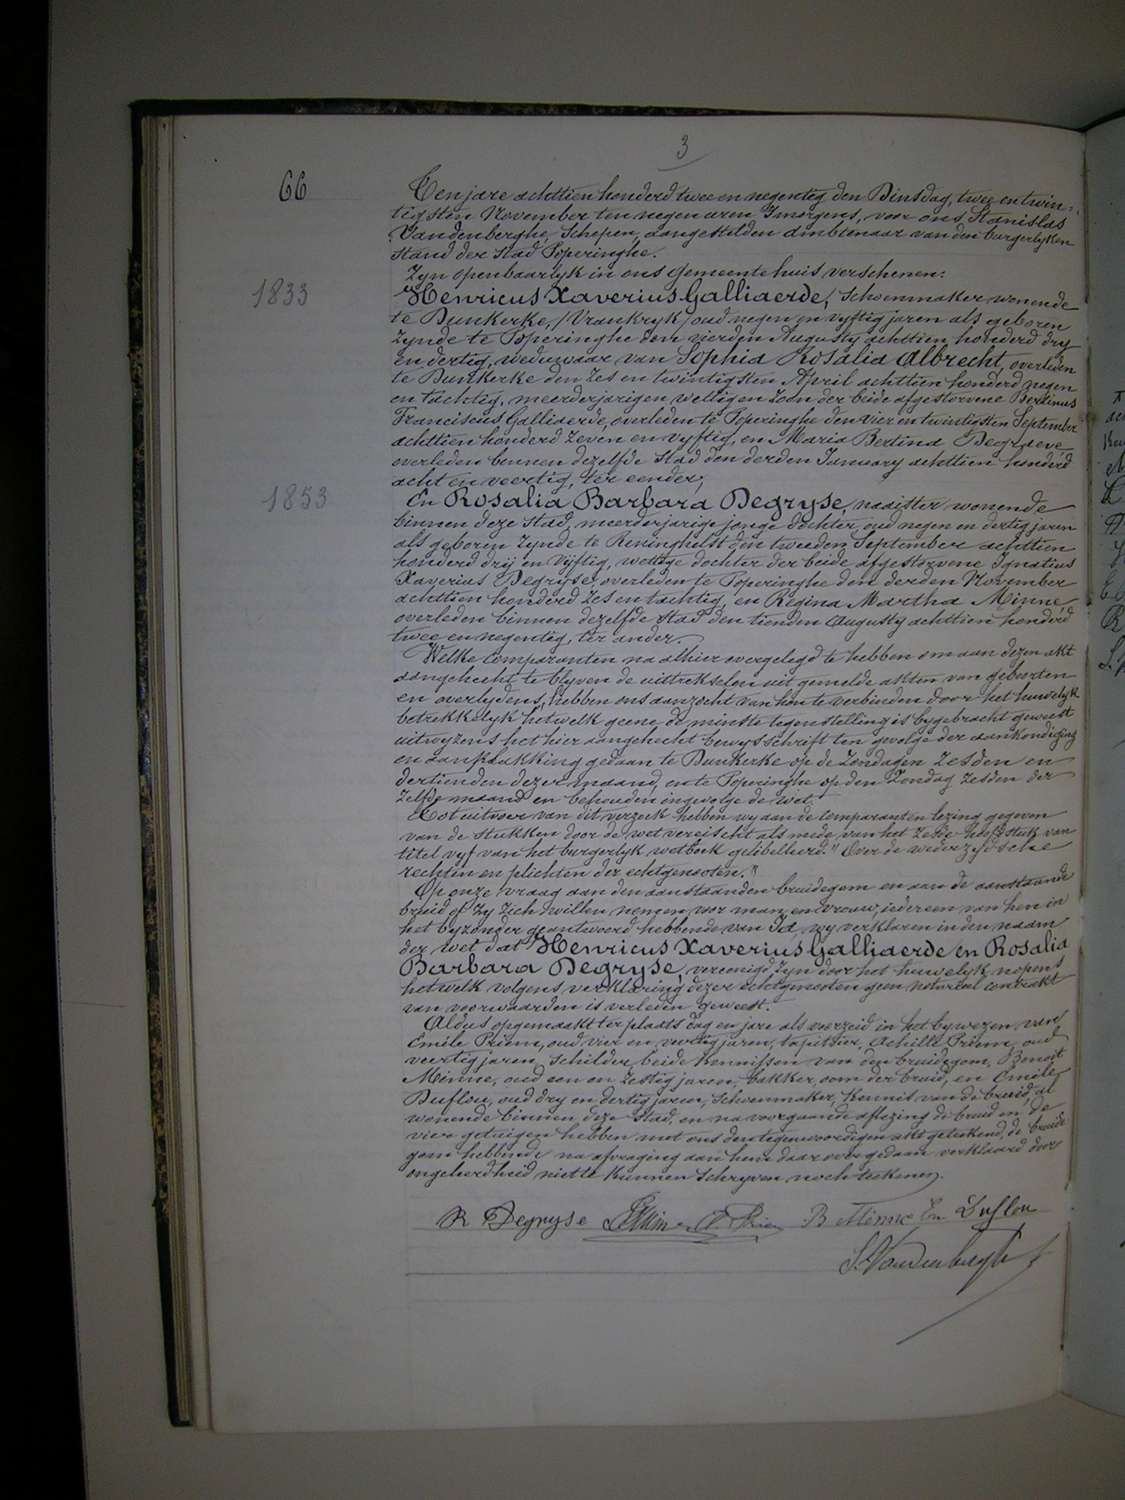 3
66
Ten jare achttien honderd twee en negentig den Dinsdag, twee en twin-
tigsten November ten negen uren 'smorgens, voor ons Stanislas
Vandenberghe Schepen, aangestelden ambtenaar van den burgerlyken
stand der stad Poperinghe.
Zyn openbaarlyk in ons gemeentehuis verschenen:
1833
Henricus Xaverius Galliaerde, schoenmaker wonende
te Dunkerke, (Vrankryk) oud negen en vyftig jaren als geboren
zynde te Poperinghe den vierden Augusty achttien honderd dry
en dertig, weduwaar van Sophia Rosalia Albrecht, overleden
te Dunkerke den zes en twintigsten April achttien honderd negen
en tachtig, meerderjarigen wettigen zoon der beide afgestorvene Bertinus
Franciscus Galliaerde, overleden te Poperinghe den vier en twintigsten September
achttien honderd zeven en vyftig, en Maria Bertina Degraeve
overleden binnen dezelfde stad den derden January achttien honderd
acht en veertig, ter eender,
1853
En Rosalia Barbara Degryse, naaister wonende
binnen deze stad, meerderjarige jonge dochter, oud negen en dertig jaren
als geboren zynde te Reninghelst den tweeden September achttien
honderd drij en vyftig, wettige dochter der beide afgestorvene Ignatius
Xaverius Degryse, overleden te Poperinghe den derden November
achttien honderd zes en tachtig, en Regina Martha Minne
overleden binnen dezelfde stad den tienden Augusty achttien honderd
twee en negentig, ter ander.
Welke comparanten na alhier overgelegd te hebben om aan dezen akt
aangehecht te blyven de uittreksels uit gemelde akten van geboorten
en overlydens, hebben ons aanzocht van hun te verbinden door het huwelyk
betrekkelyk hetwelk geene de minste tegenstelling is bygebracht geweest
uitwyzens het hier aangehecht bewysschrift ten gevolge der aankondiging
en aanplakking gedaan te Dunkerke op de Zondagen zesden en
dertienden dezer maand, en te Poperinghe op den Zondag zesden der
zelfde maand en behouden ingevolge de wet.
Tot uitvoer van dit verzoek hebben wy aan de comparanten lezing gegeven
van de stukken door de wet vereischt als mede van het zesde hoofdstuk van
titel vyf van het burgerlyk wetboek gelibelleerd. "Over de wederzydsche
rechten en plichten der echtgenooten."
Op onze vraag aan den aanstaanden bruidegom en aan de aanstaande
bruid of zy zich willen nemen voor man en vrouw, iedereen van hen in
het byzonder geantwoord hebbende van Ja, wy verklaren in den naam
der wet dat Henricus Xaverius Galliaerde en Rosalia
Barbara Degryse, vereenigd zyn door het huwelyk nopens
hetwelk volgens verklaring dezer echtgenooten geen notarieel contrakt
van voorwaarden is verleden geweest.
Aldus opgemaakt ter plaats dag en jare als voorzeid in het bywezen van
Emile Prieme, oud vier en veertig jaren, tapitsier, Achille Prieme, oud
veertig jaren, schilder, beide kennissen van den bruidegom, Benoit
Minne, oud een en zestig jaren, bakker, oom der bruid, en Emile
Duflou, oud dry en dertig jaren, schoenmaker, kennis van de bruid, al
wonende binnen deze stad, en na voorgaande aflezing de bruid en de
vier getuigen hebben met ons den tegenwoordigen akt geteekend, de bruide
gom hebbende na afvraging aan hem daarover gedaan verklaard door
ongeleerdheid niet te kunnen schryven noch teekenen.
R Degryse B Minne Em Duflou
S. Vandenberghe